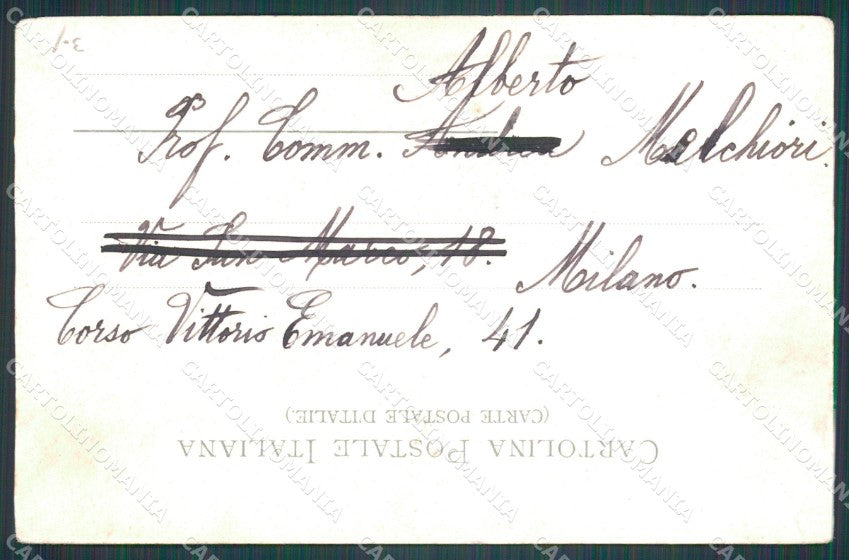 Alberto
Prof. Comm. Andrea Melchiori.
Via San Marco, 18.
Milano.
Corso Vittorio Emanuele, 41.
(CARTE POSTALE D'ITALIE)
CARTOLINA POSTALE ITALIANA
CARTOLINOMANIA